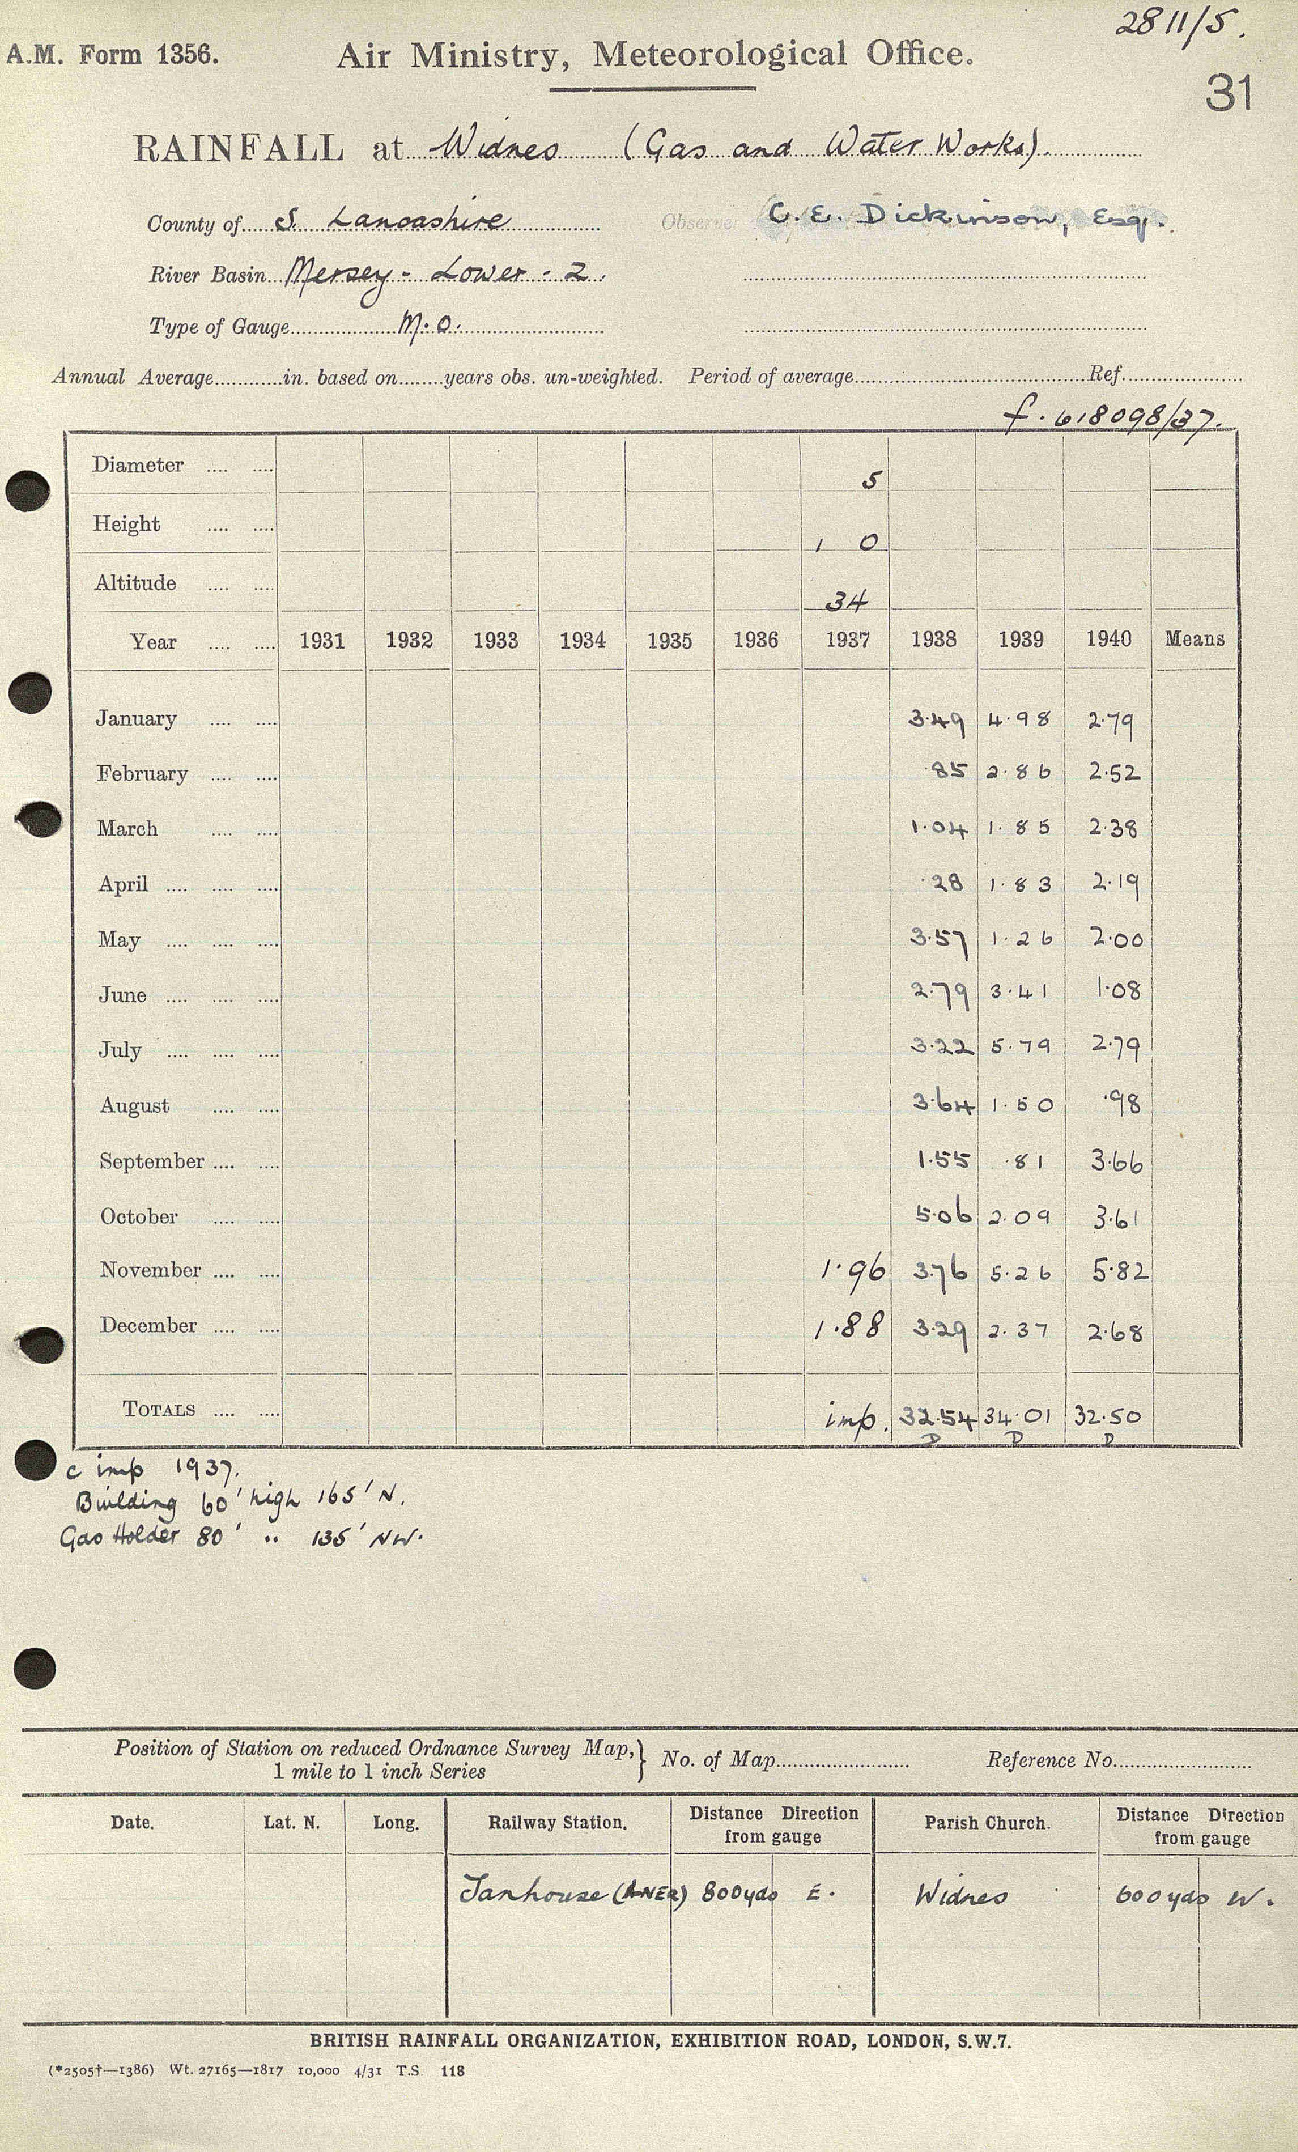 2811/5.
A.M. Form 1356. Air Ministry, Meteorological Office.
31
RAINFALL at Widnes (Gas and Water Works).
County of S. Lancashire Observer C. E. Dickinson, Esq.
River Basin Mersey - Lower - 2.
Type of Gauge M.O.
Annual Average............in. based on........years obs. un-weighted. Period of average............Ref............
f. 618098/37.
Diameter .... .... 5
Height .... .... 1 0
Altitude .... .... 34
Year .... .... 1931 1932 1933 1934 1935 1936 1937 1938 1939 1940 Means
January .... .... 3.49 4.98 2.79
February .... .... .85 2.86 2.52
March .... .... 1.04 1.85 2.38
April .... .... .... .28 1.83 2.19
May .... .... .... 3.57 1.26 2.00
June .... .... .... 2.79 3.41 1.08
July .... .... .... 3.22 5.79 2.79
August .... .... 3.64 1.50 .98
September .... .... 1.55 .81 3.66
October .... .... 5.06 2.09 3.61
November .... .... 1.96 3.76 5.26 5.82
December .... .... 1.88 3.29 2.37 2.68
TOTALS .... .... imp. 32.54 34.01 32.50
D D D
c imp 1937.
Building 60' high 165' N.
Gas Holder 80' " 135' NW.
Position of Station on reduced Ordnance Survey Map,
1 mile to 1 inch Series } No. of Map............ Reference No............
Date. Lat. N. Long. Railway Station. Distance Direction Parish Church. Distance Direction
from gauge from gauge
Tanhouse (LNER) 800yds E. Widnes 600yds W.
BRITISH RAINFALL ORGANIZATION, EXHIBITION ROAD, LONDON, S.W.7.
(*2505†—1386) Wt. 27165—1817 10,000 4/31 T.S. 118